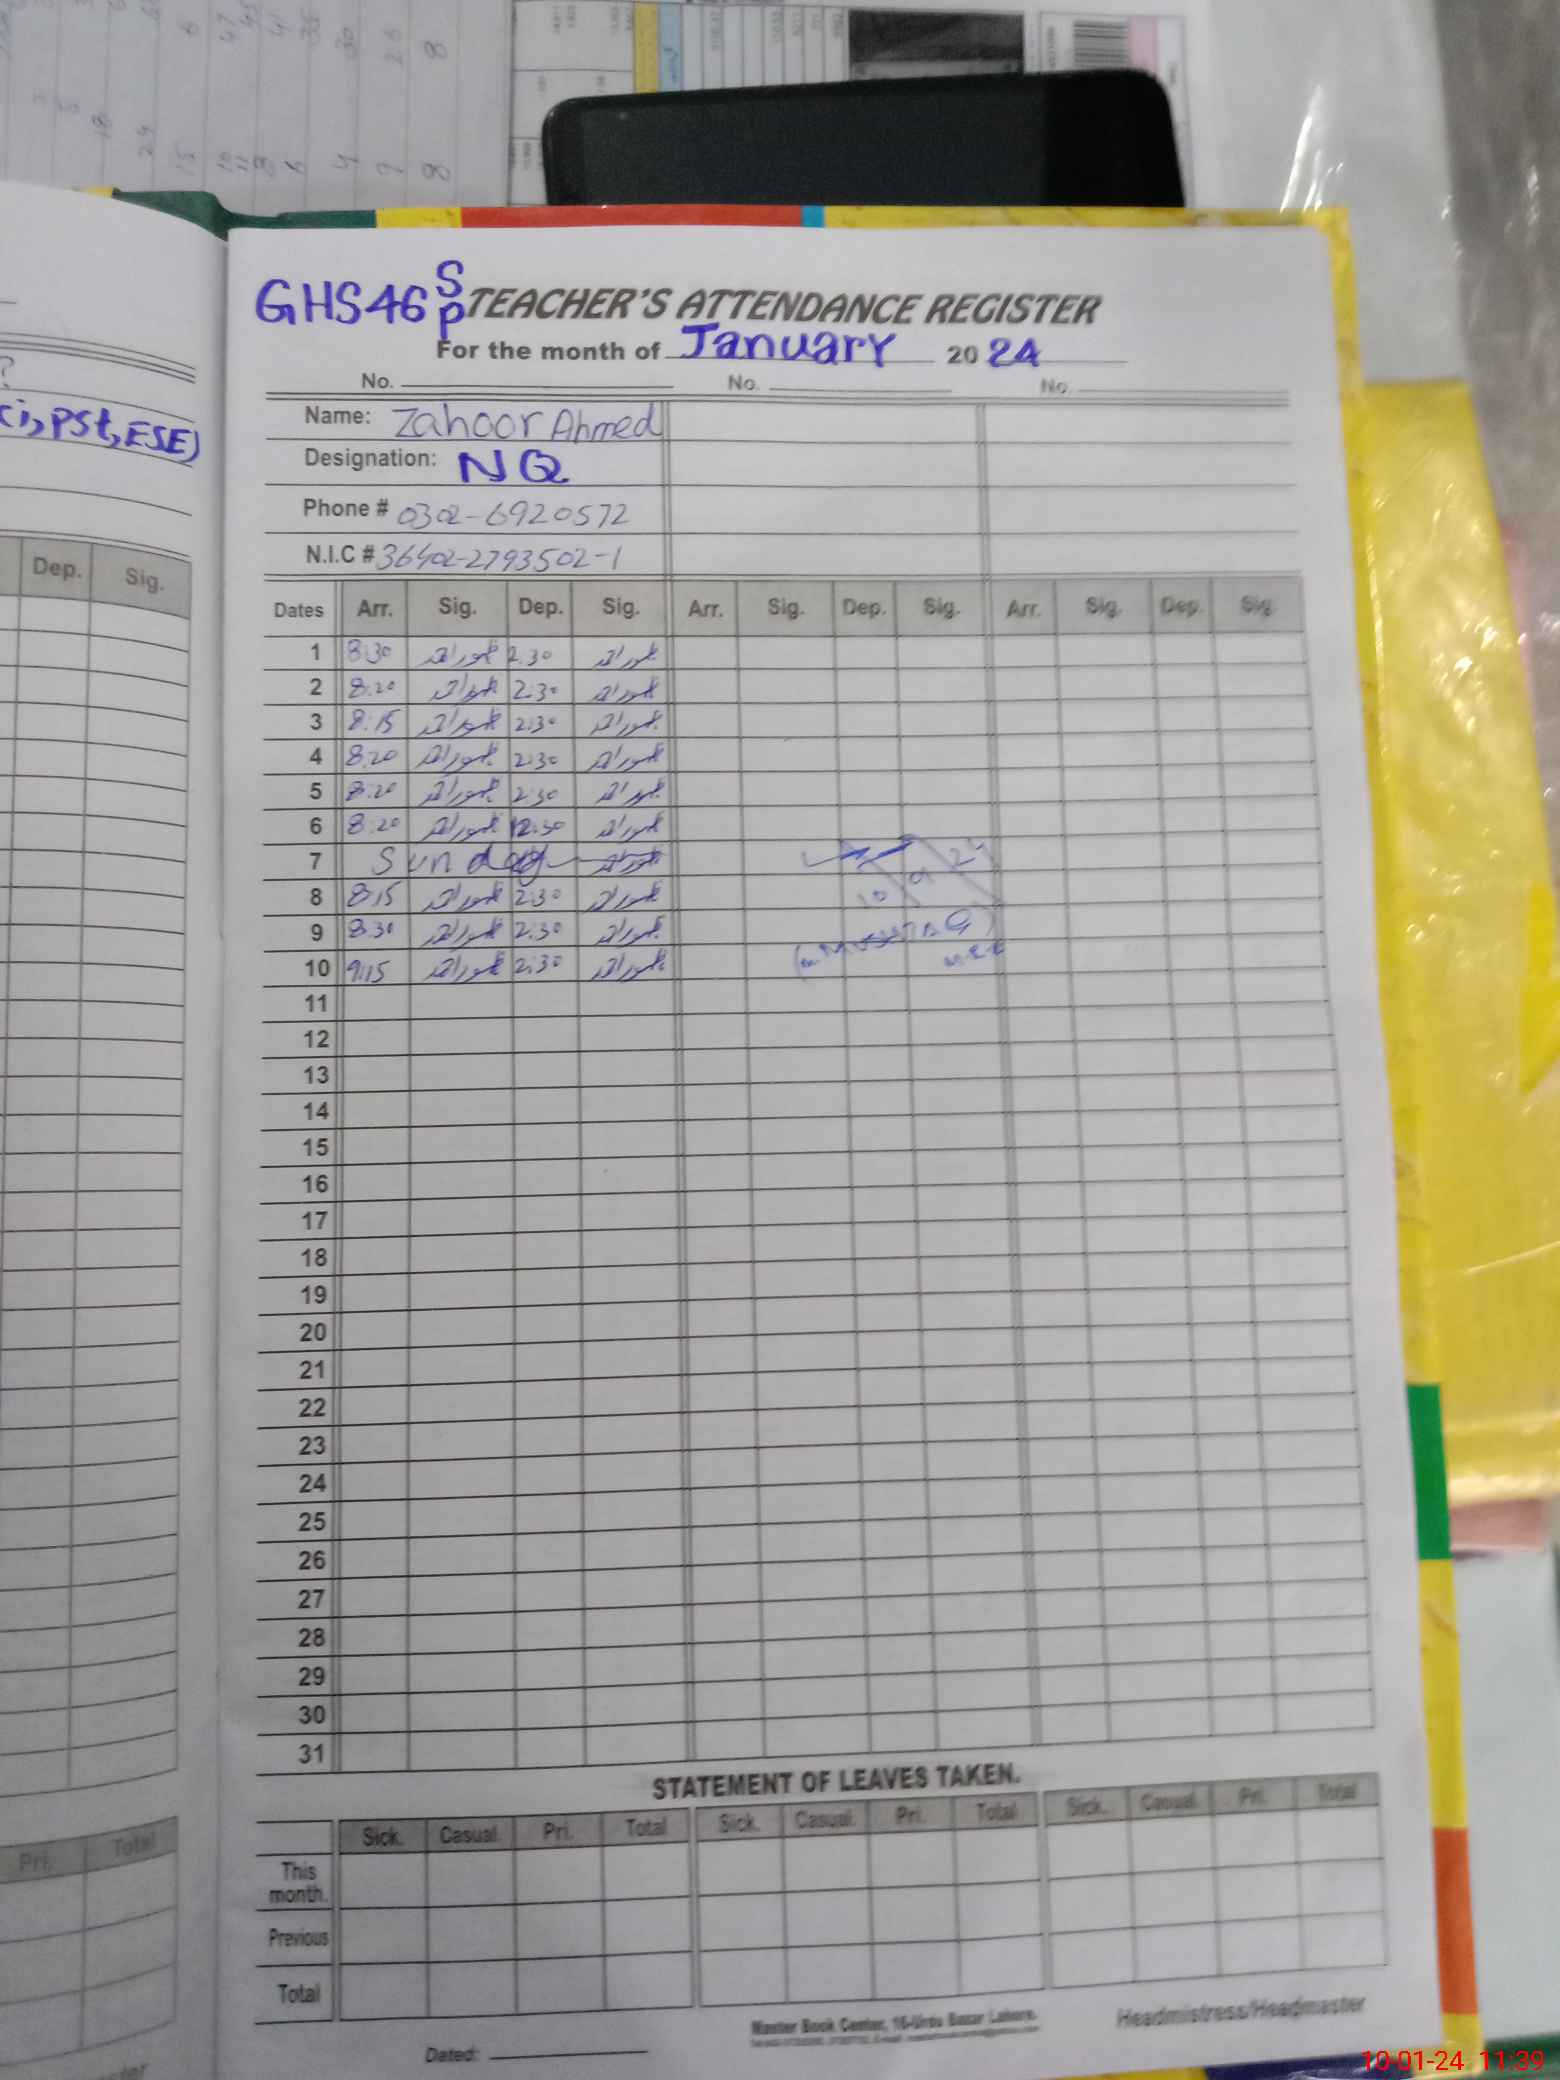 GHS46 S
P TEACHER'S ATTENDANCE REGISTER
For the month of January 2024
No. No. No.
Name: Zahoor Ahmed
Designation: NQ
Phone # 0302-6920572
N.I.C # 36402-2793502-1
Dates Arr. Sig. Dep. Sig. Arr. Sig. Dep. Sig. Arr. Sig. Dep. Sig.
1 8:30 ظہور احمد 2.30 ظہور احمد
2 8:20 ظہور احمد 2:30 ظہور احمد
3 8:15 ظہور احمد 2:30 ظہور احمد
4 8:20 ظہور احمد 2:30 ظہور احمد
5 8:20 ظہور احمد 2:30 ظہور احمد
6 8:20 ظہور احمد 12:30 ظہور احمد
7 Sunday ظہور احمد
8 8:15 ظہور احمد 2:30 ظہور احمد
9 8:30 ظہور احمد 2:30 ظہور احمد
10 9:15 ظہور احمد 2:30 ظہور احمد
11
12
13
14
15
16
17
18
19
20
21
22
23
24
25
26
27
28
29
30
31
STATEMENT OF LEAVES TAKEN.
Sick. Casual. Pri. Total Sick. Casual. Pri. Total Sick. Casual. Pri. Total
This month.
Previous
Total
Master Book Center, 16-Urdu Bazar Lahore.
Headmistress/Headmaster
Dated:
PSt, ESE)
Dep. Sig.
Pri. Total
10-01-24 11:39